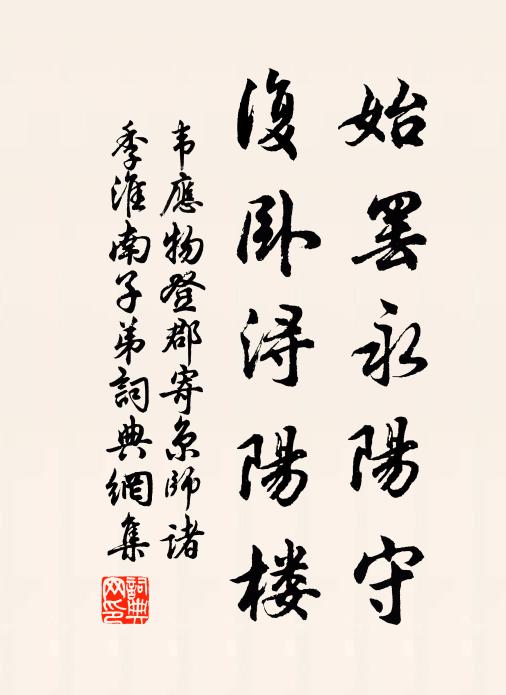 始罢永陽守
復卧浔陽楼
韦應物登郡寄京師諸
季淮南子弟詞典網集
詞典网印